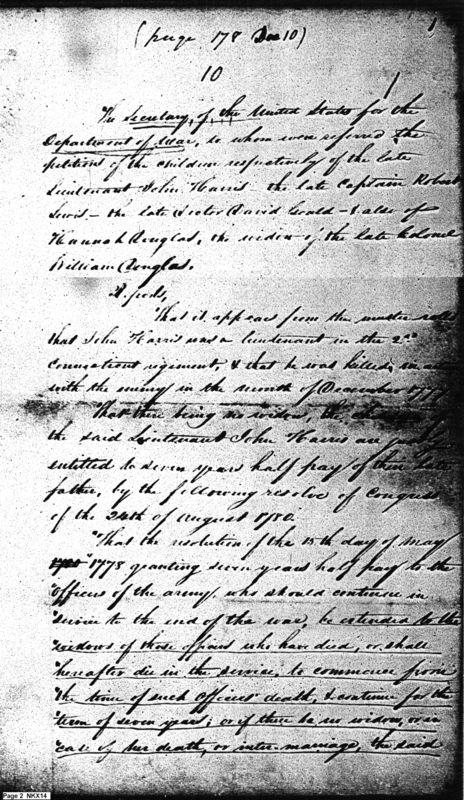 (page 178 Doc 10)
10
The Secretary of the United States for the
Department of War, to whom were referred the
petitions of the children respectively of the late
Lieutenant John Harris - the late Captain Robert
Lewis - the late Doctor David Gould - & also of
Hannah Douglas, the widow of the late Colonel
William Douglas.
Reports,
That it appears from the muster rolls
that John Harris was a lieutenant in the 2nd
Connecticut regiment, & that he was killed in action
with the enemy in the month of December 1777.
That there being no widow, the
the said Lieutenant John Harris are justly
entitled to seven years half pay of their late
father, by the following resolve of Congress
of the 24th of August 1780.
"That the resolution of the 15th day of May
"1778 granting seven years half pay to the
"Officers of the army, who should continue in
"service to the end of the war, be extended to the
"widows of those officers who have died, or shall
"hereafter die in the service, to commence from
"the time of such Officers death, & continue for the
"term of seven years; or if there be no widow, or in
"case of her death, or inter-marriage, the said
Page 2 NKX14